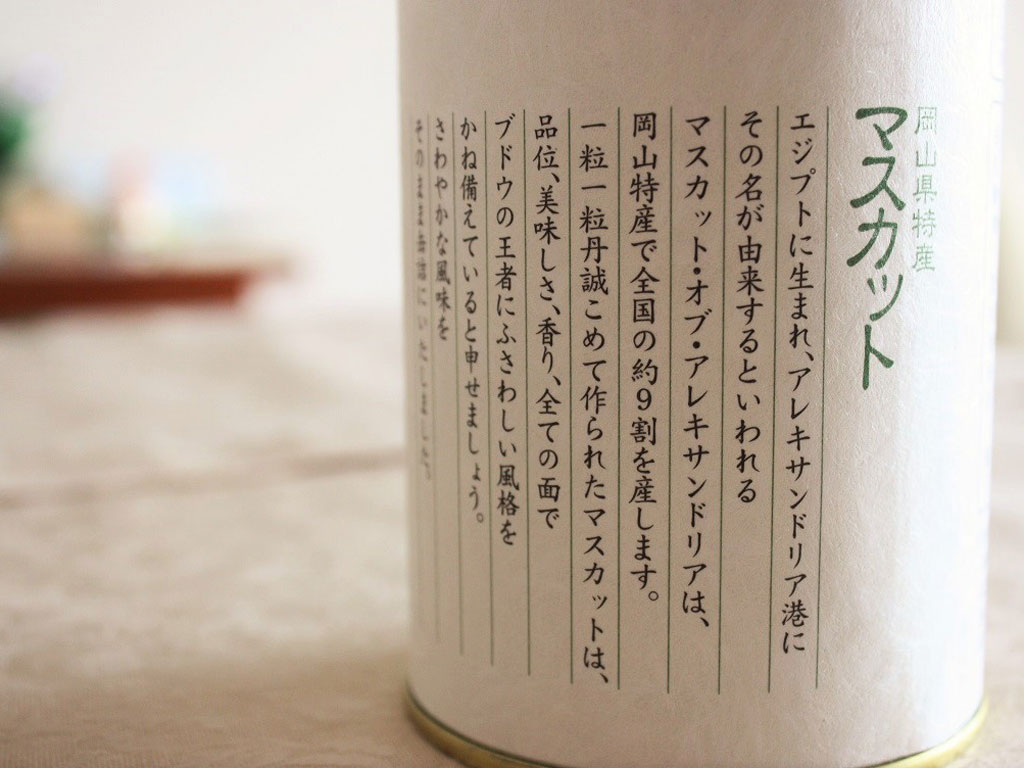 岡山県特産
マスカット
エジプトに生まれ、アレキサンドリア港に
その名が由来するといわれる
マスカット・オブ・アレキサンドリアは、
岡山特産で全国の約9割を産します。
一粒一粒丹誠こめて作られたマスカットは、
品位、美味しさ、香り、全ての面で
ブドウの王者にふさわしい風格を
かね備えていると申せましょう。
さわやかな風味を
そのまま缶詰にいたしました。